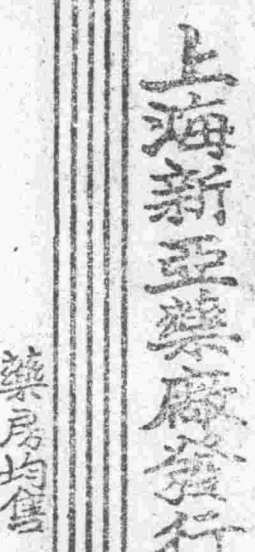 上海新亞藥廠發行
藥房均售